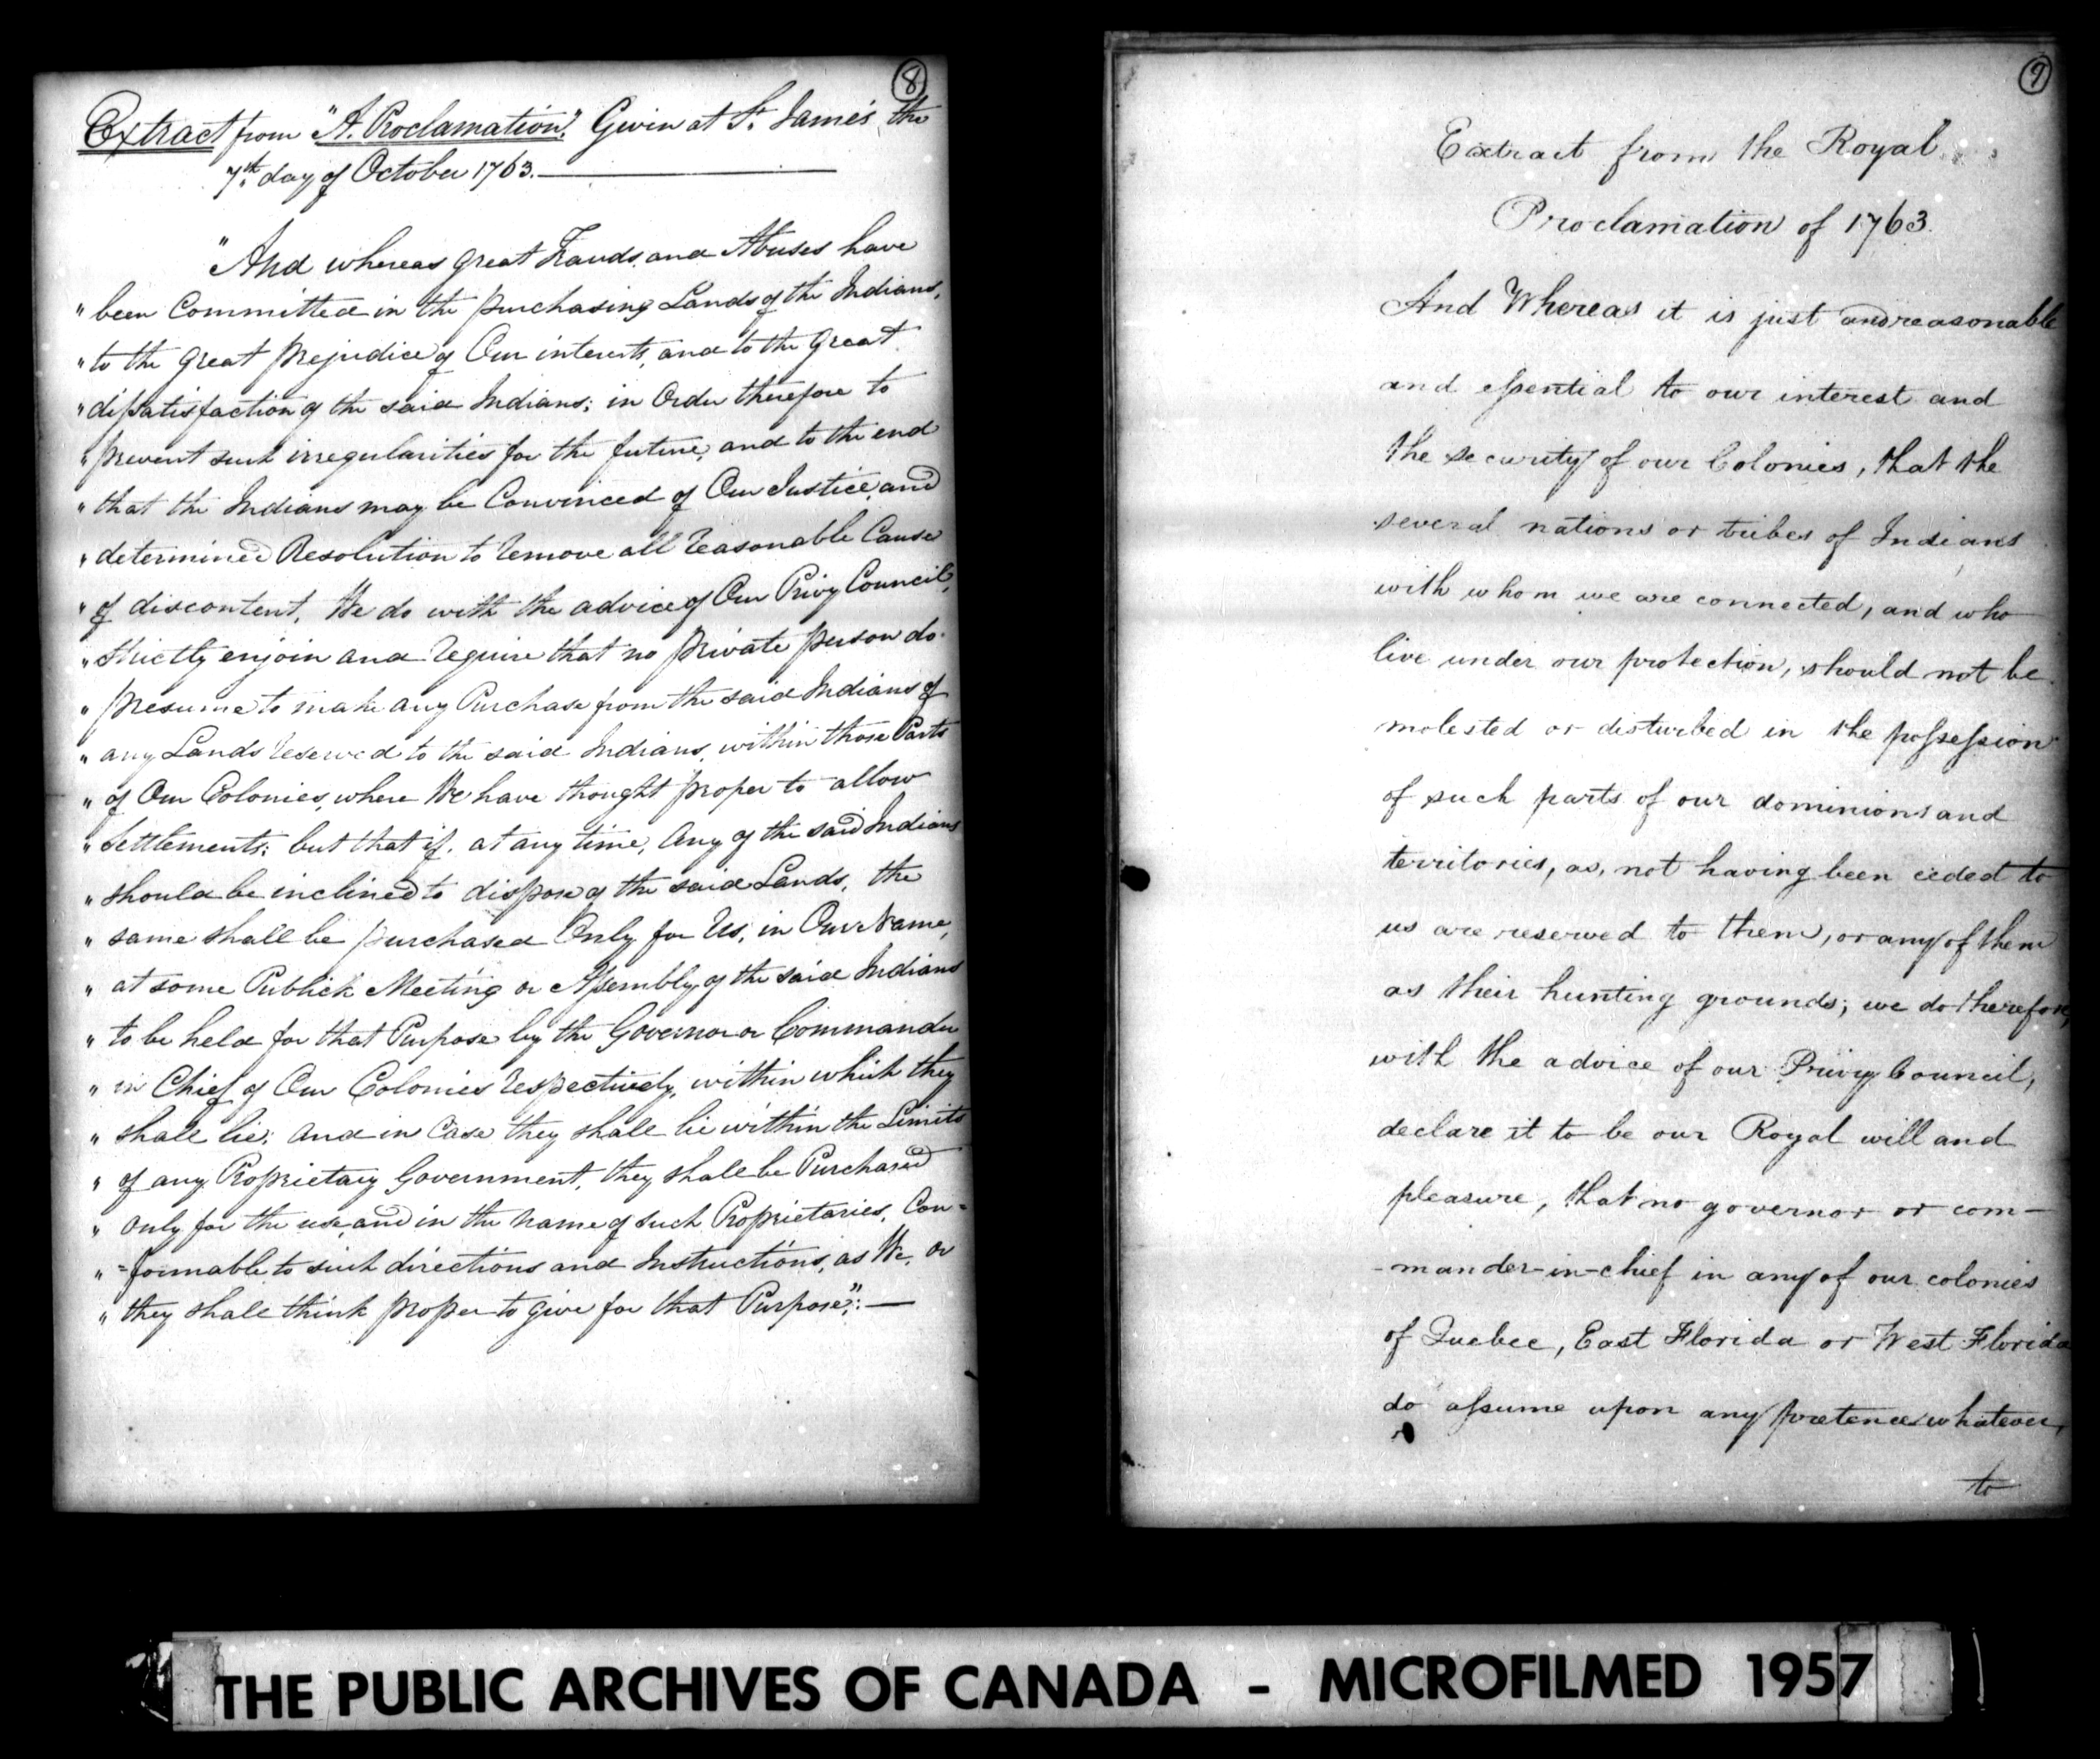 8
Extract from "A. Proclamation." Given at St. James's the
7th. day of October 1763.
"And whereas great Frauds and Abuses have
" been Committed in the purchasing Lands of the Indians,
" to the great prejudice of Our interests, and to the great
" dissatisfaction of the said Indians; in Order therefore to
" prevent such irregularities for the future, and to the end
" that the Indians may be Convinced of Our Justice, and
" determined Resolution to remove all reasonable Cause
" of discontent, We do with the advice of Our Privy Council,
" strictly enjoin and require that no private person do
" presume to make any Purchase from the said Indians of
" any Lands reserved to the said Indians, within those Parts
" of Our Colonies, where We have thought proper to allow
" Settlements; but that if, at any time, any of the said Indians
" should be inclined to dispose of the said Lands, the
" same shall be purchased Only for Us, in Our Name,
" at some Publick Meeting or Assembly of the said Indians
" to be held for that Purpose by the Governor or Commander
" in Chief of Our Colonies respectively, within which they
" shall lie; and in Case they shall lie within the Limits
" of any Proprietary Government, they shall be Purchased
" only for the use, and in the name of such Proprietaries, Con=
" =formable to such directions and Instructions, as We, or
" they shall think proper to give for that Purpose":—
9
Extract from the Royal
Proclamation of 1763.
And Whereas it is just and reasonable
and essential to our interest and
the security of our Colonies, that the
several nations or tribes of Indians
with whom we are connected, and who
live under our protection, should not be
molested or disturbed in the possession
of such parts of our dominions and
territories, as, not having been ceded to
us are reserved to them, or any of them
as their hunting grounds; we do therefore,
with the advice of our Privy Council,
declare it to be our Royal will and
pleasure, that no governor or com-
-mander-in-chief in any of our colonies
of Quebec, East Florida or West Florida
do assume upon any pretence whatever,
to
THE PUBLIC ARCHIVES OF CANADA - MICROFILMED 1957